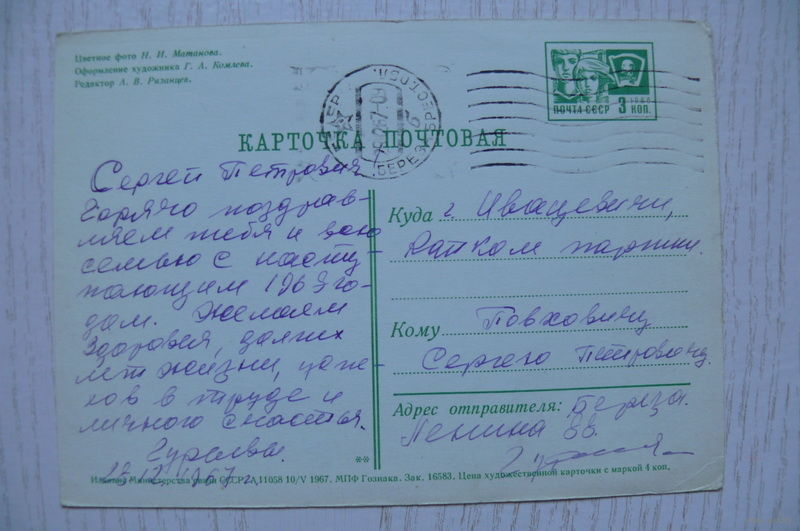 Цветное фото Н. И. Матанова.
Оформление художника Г. А. Комлева.
Редактор А. В. Рязанцев.
ПОЧТА СССР 3 КОП.
КАРТОЧКА ПОЧТОВАЯ
Сергей Петрович
Горячо поздрав-
ляем тебя и всю
семью с насту-
пающим 1968 го-
дом. Желаем
здоровья, долгих
лет жизни, успе-
хов в труде и
личного счастья.
27.12.1967 г.
Куда г. Ивацевичи,
Райком партии.
Кому Повховичу
Сергею Петровичу.
Адрес отправителя: Береза.
Ленина
**
Издание Министерства связи СССР. А 11058 10/V 1967. МПФ Гознака. Зак. 16583. Цена художественной карточки с маркой 4 коп.